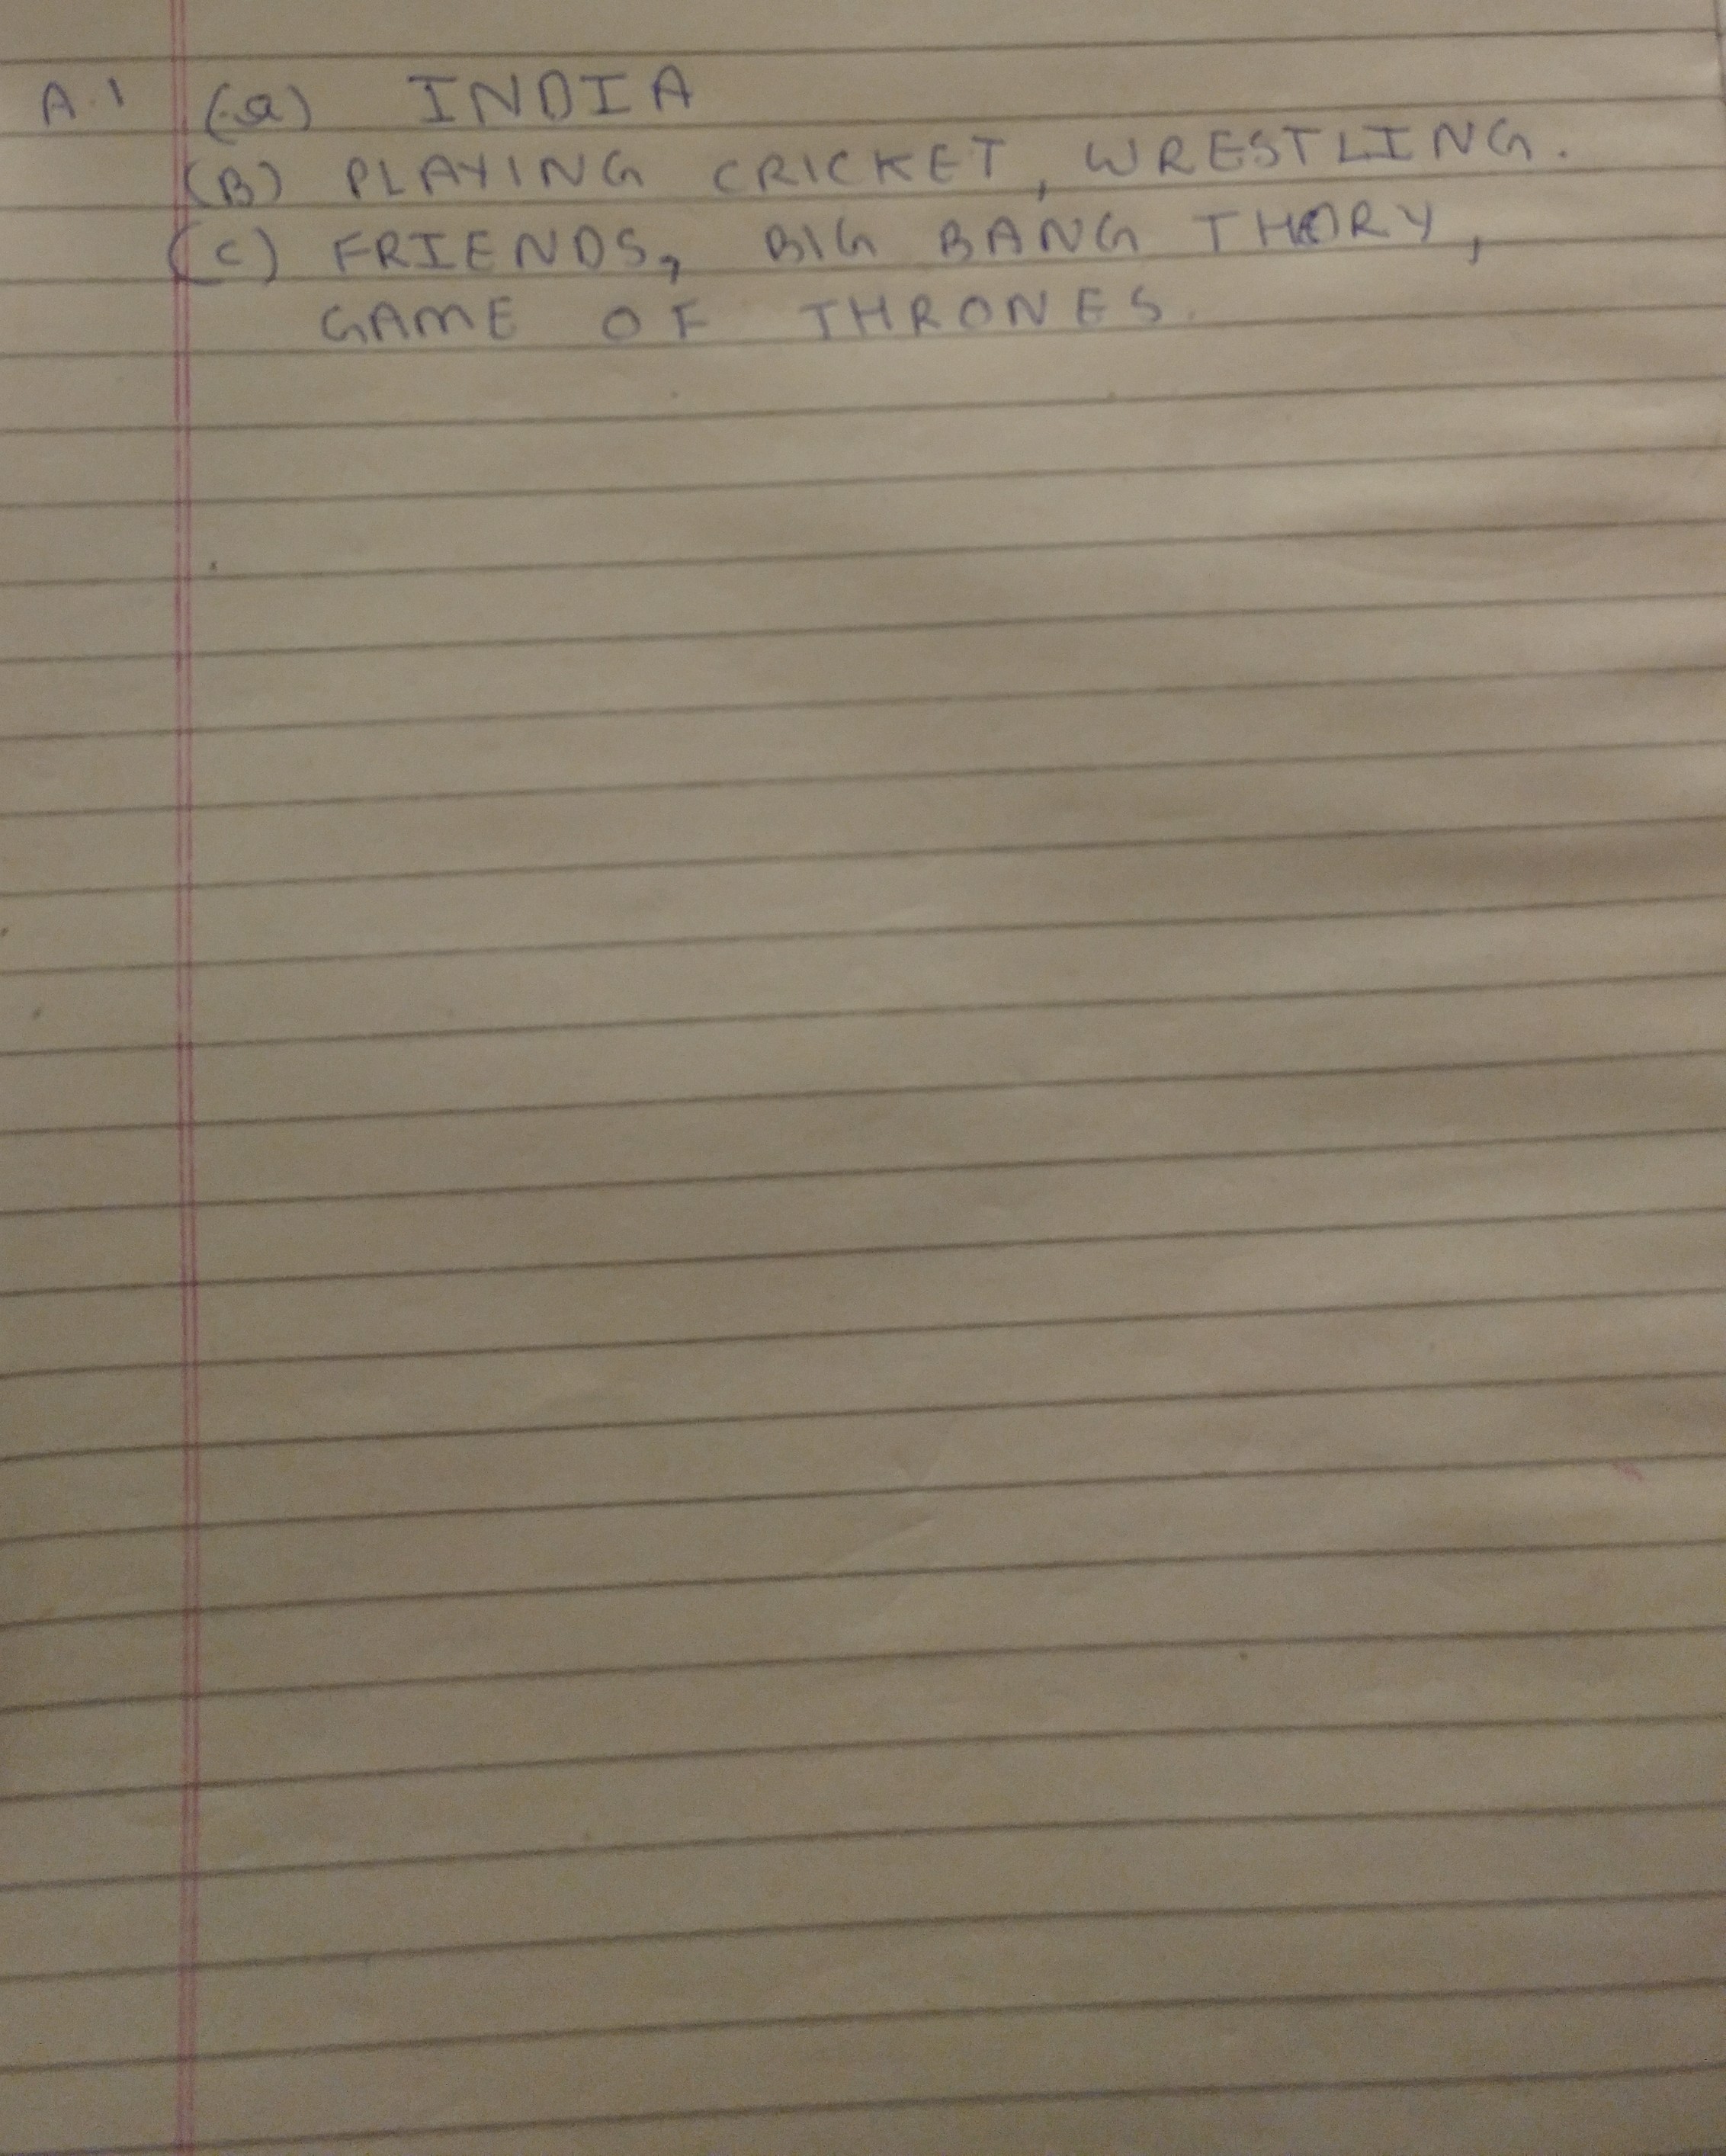 A.1 (a) INDIA
(B) PLAYING CRICKET, WRESTLING.
(C) FRIENDS, BIG BANG THORY,
GAME OF THRONES.